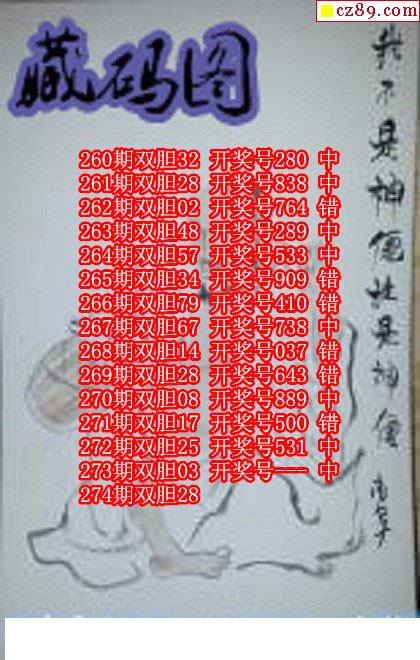 cz89.com
藏码图
260期双胆32 开奖号280 中
261期双胆28 开奖号838 中
262期双胆02 开奖号764 错
263期双胆48 开奖号289 中
264期双胆57 开奖号533 中
265期双胆34 开奖号909 错
266期双胆79 开奖号410 错
267期双胆67 开奖号738 中
268期双胆14 开奖号037 错
269期双胆28 开奖号643 错
270期双胆08 开奖号889 中
271期双胆17 开奖号500 错
272期双胆25 开奖号531 中
273期双胆03 开奖号--- 中
274期双胆28
我不是神
是神